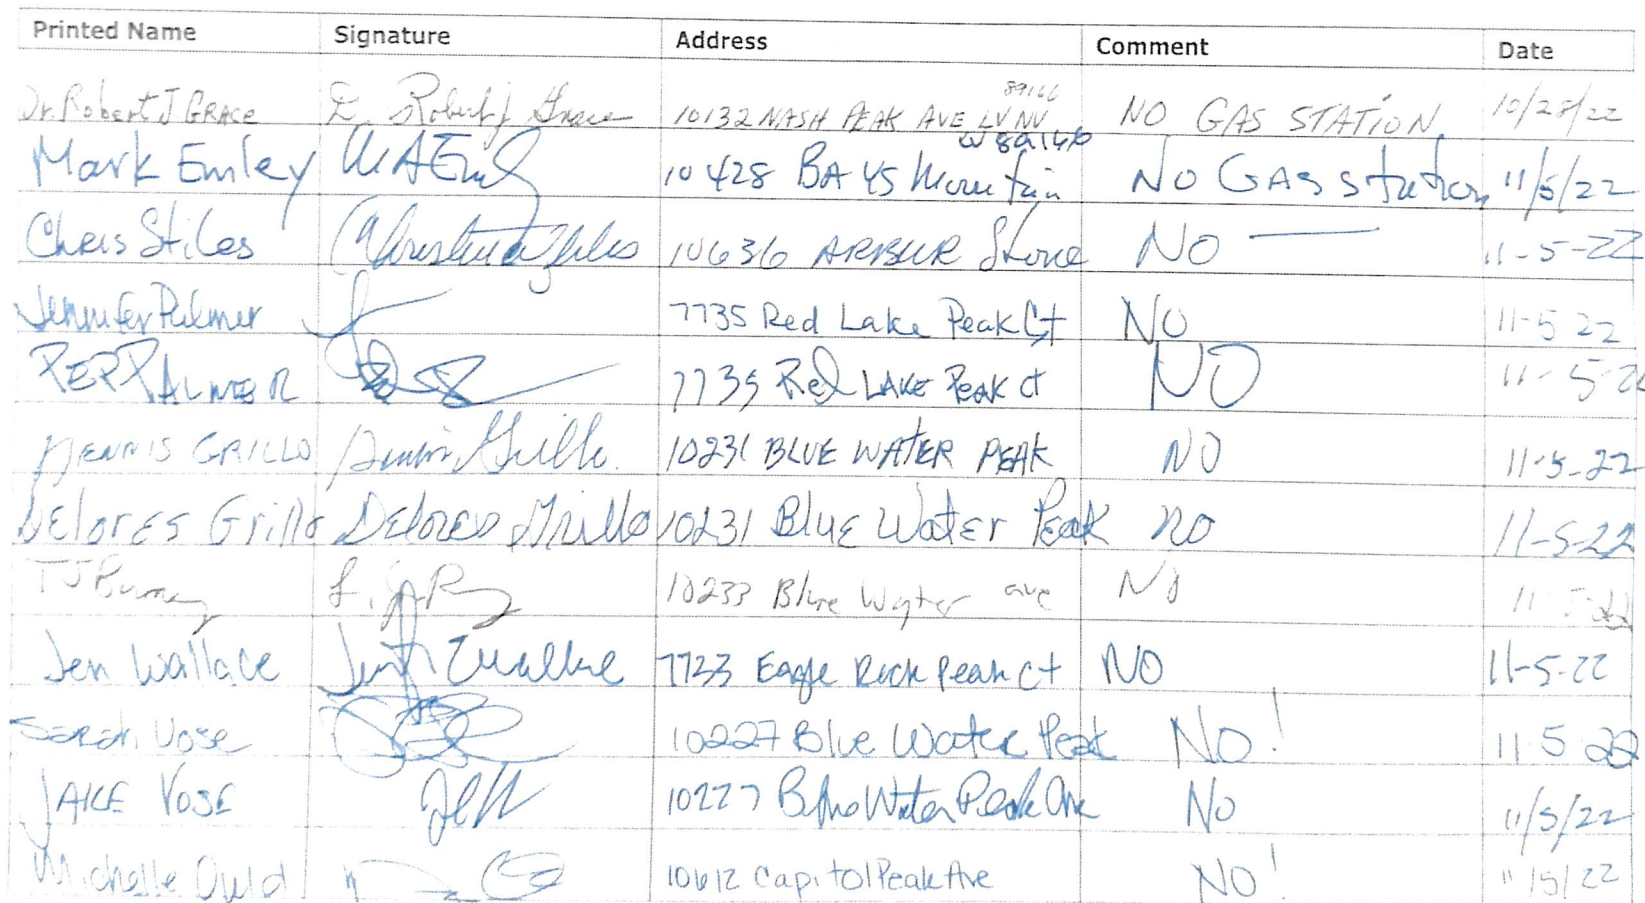 Printed Name Signature Address Comment Date
Dr. Robert J GRACE Dr. Robert J Grace 10132 NASH PEAK AVE LV NV 89166 NO GAS STATION 10/28/22
Mark Emley 10428 BAYS Mountain LV 89166 No GAS Station 11/5/22
Chris Stiles 10636 ARBOUR Stone No 11-5-22
Jennifer Palmer 7735 Red Lake Peak Ct NO 11-5 22
PER PALMER 7735 Red LAKE PEAK ct NO 11-5-22
DENNIS GRILLO Dennis Grillo 10231 BLUE WATER PEAK NO 11-5-22
DElorEs Grillo Delores Grillo 10231 BluE WatEr Peak no 11-5-22
TJ 10233 Blue Water ave No
Jen Wallace 7723 Eagle Rock Peak ct NO 11-5-22
Sarah Vose 10227 Blue Water Peak No! 11 5 22
JAKE VOSE 10227 Blue Water Peak Ave No 11/5/22
Michelle 10612 Capitol Peak Ave NO! 11/5/22